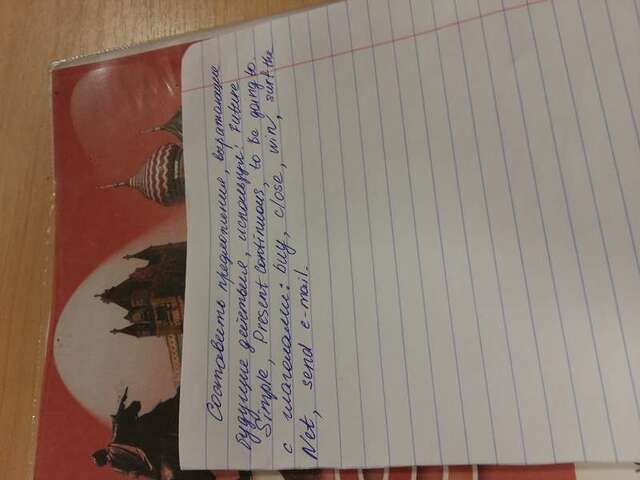 Составить предложения, выражающие
будущие действия, используя: Future
Simple, Present Continuous, to be going to.
с глаголами: buy, close, win, surf the
Net, send e-mail.